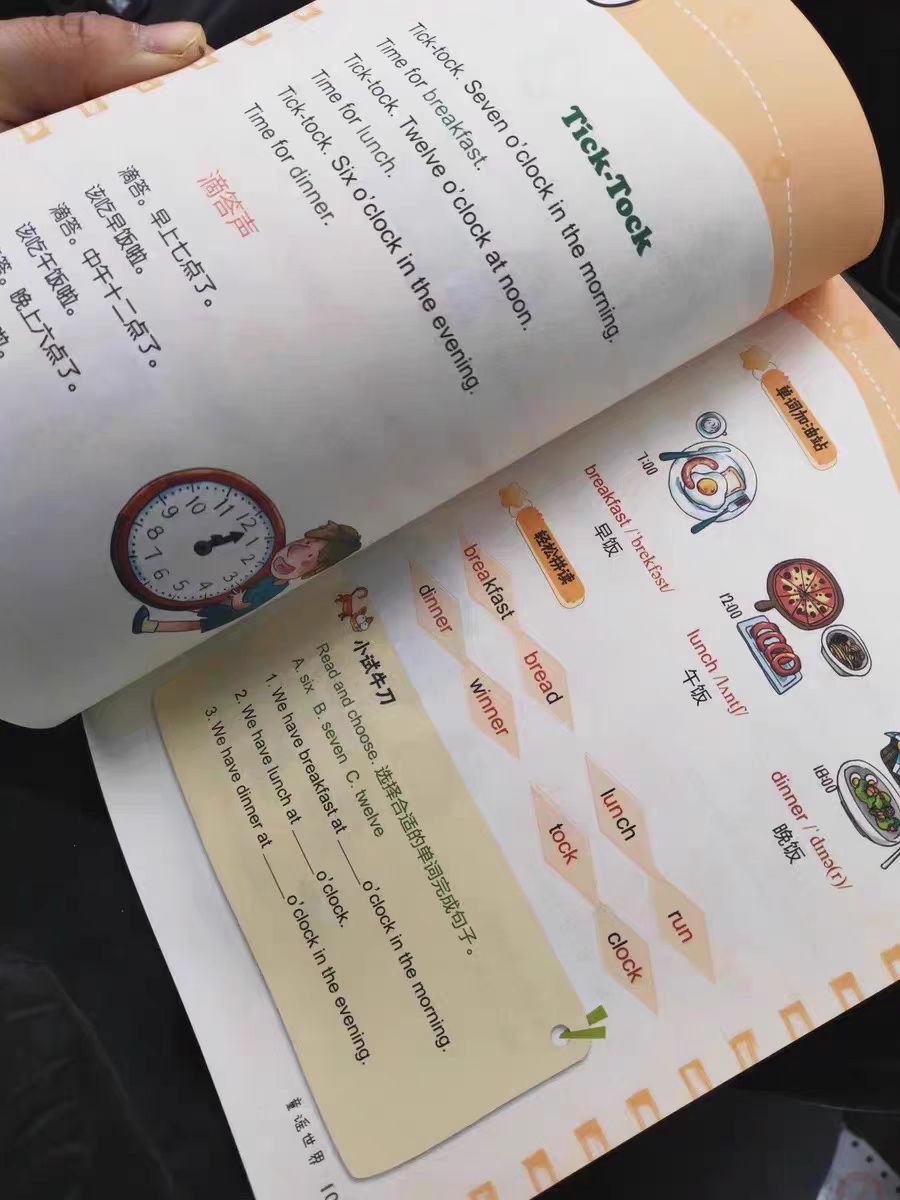 Tick-Tock
Tick-tock. Seven o'clock in the morning.
Time for breakfast.
Tick-tock. Twelve o'clock at noon.
Time for lunch.
Tick-tock. Six o'clock in the evening.
Time for dinner.
滴答声
滴答。早上七点了。
该吃早饭啦。
滴答。中午十二点了。
该吃午饭啦。
答。晚上六点了。
啦。
11
12
1
2
3
4
5
6
7
8
9
10
单词加油站
7:00
breakfast /ˈbrekfəst/
早饭
12:00
lunch /lʌntʃ/
午饭
18:00
dinner /ˈdɪnə(r)/
晚饭
轻松拼读
breakfast
bread
lunch
run
dinner
winner
tock
clock
小试牛刀
Read and choose. 选择合适的单词完成句子。
A. six B. seven C. twelve
1. We have breakfast at ____ o'clock in the morning.
2. We have lunch at ____ o'clock.
3. We have dinner at ____ o'clock in the evening.
童谣世界